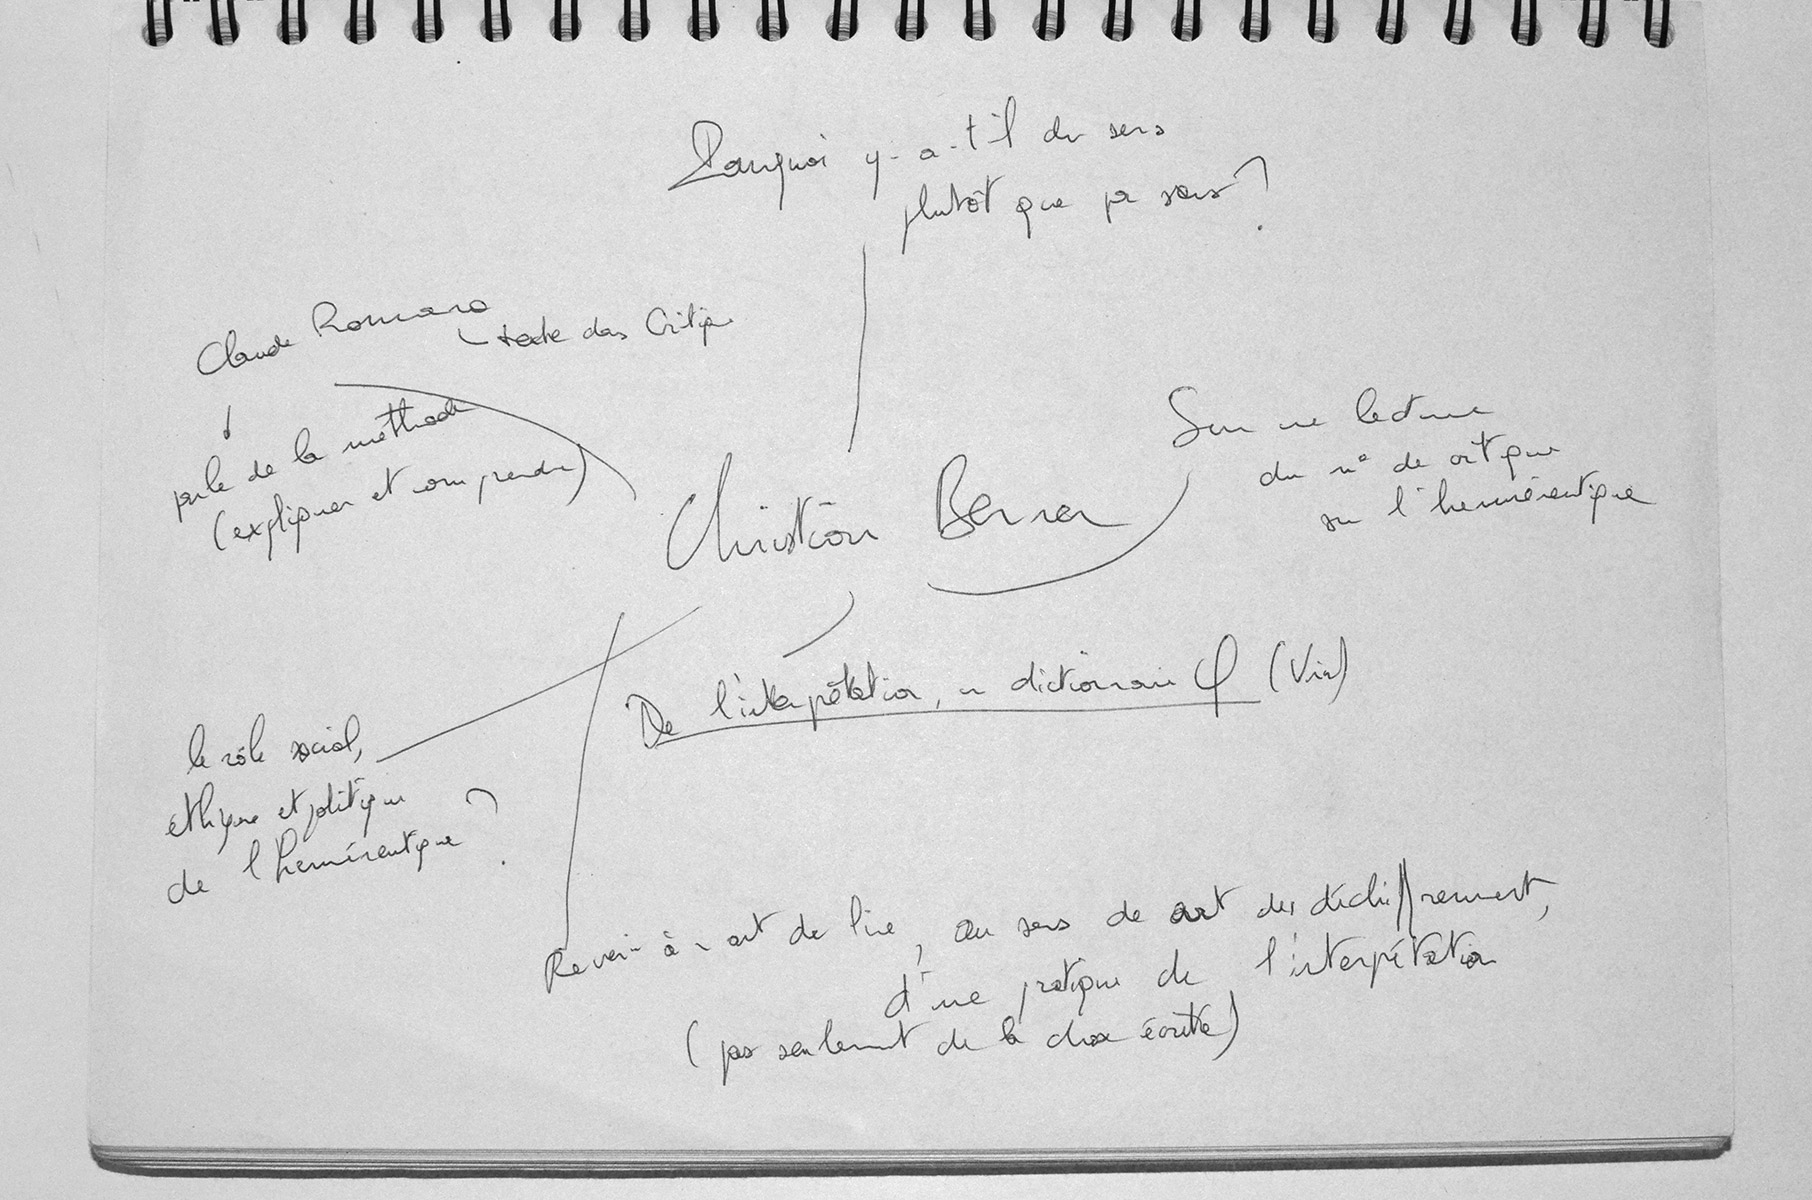 Pourquoi y-a-t'il du sens
plutôt que pas sens ?
Claude Romano
texte dans Critique
parle de la méthode
(expliquer et comprendre)
Sur une lecture
du n° de critique
sur l'herméneutique
Christian Berner
De l'interprétation, un dictionnaire φ (Vrin)
le rôle social,
éthique et politique
de l'herméneutique ?
Revenir à un art de lire, au sens de art du déchiffrement,
d'une pratique de l'interprétation
(pas seulement de la chose écrite)